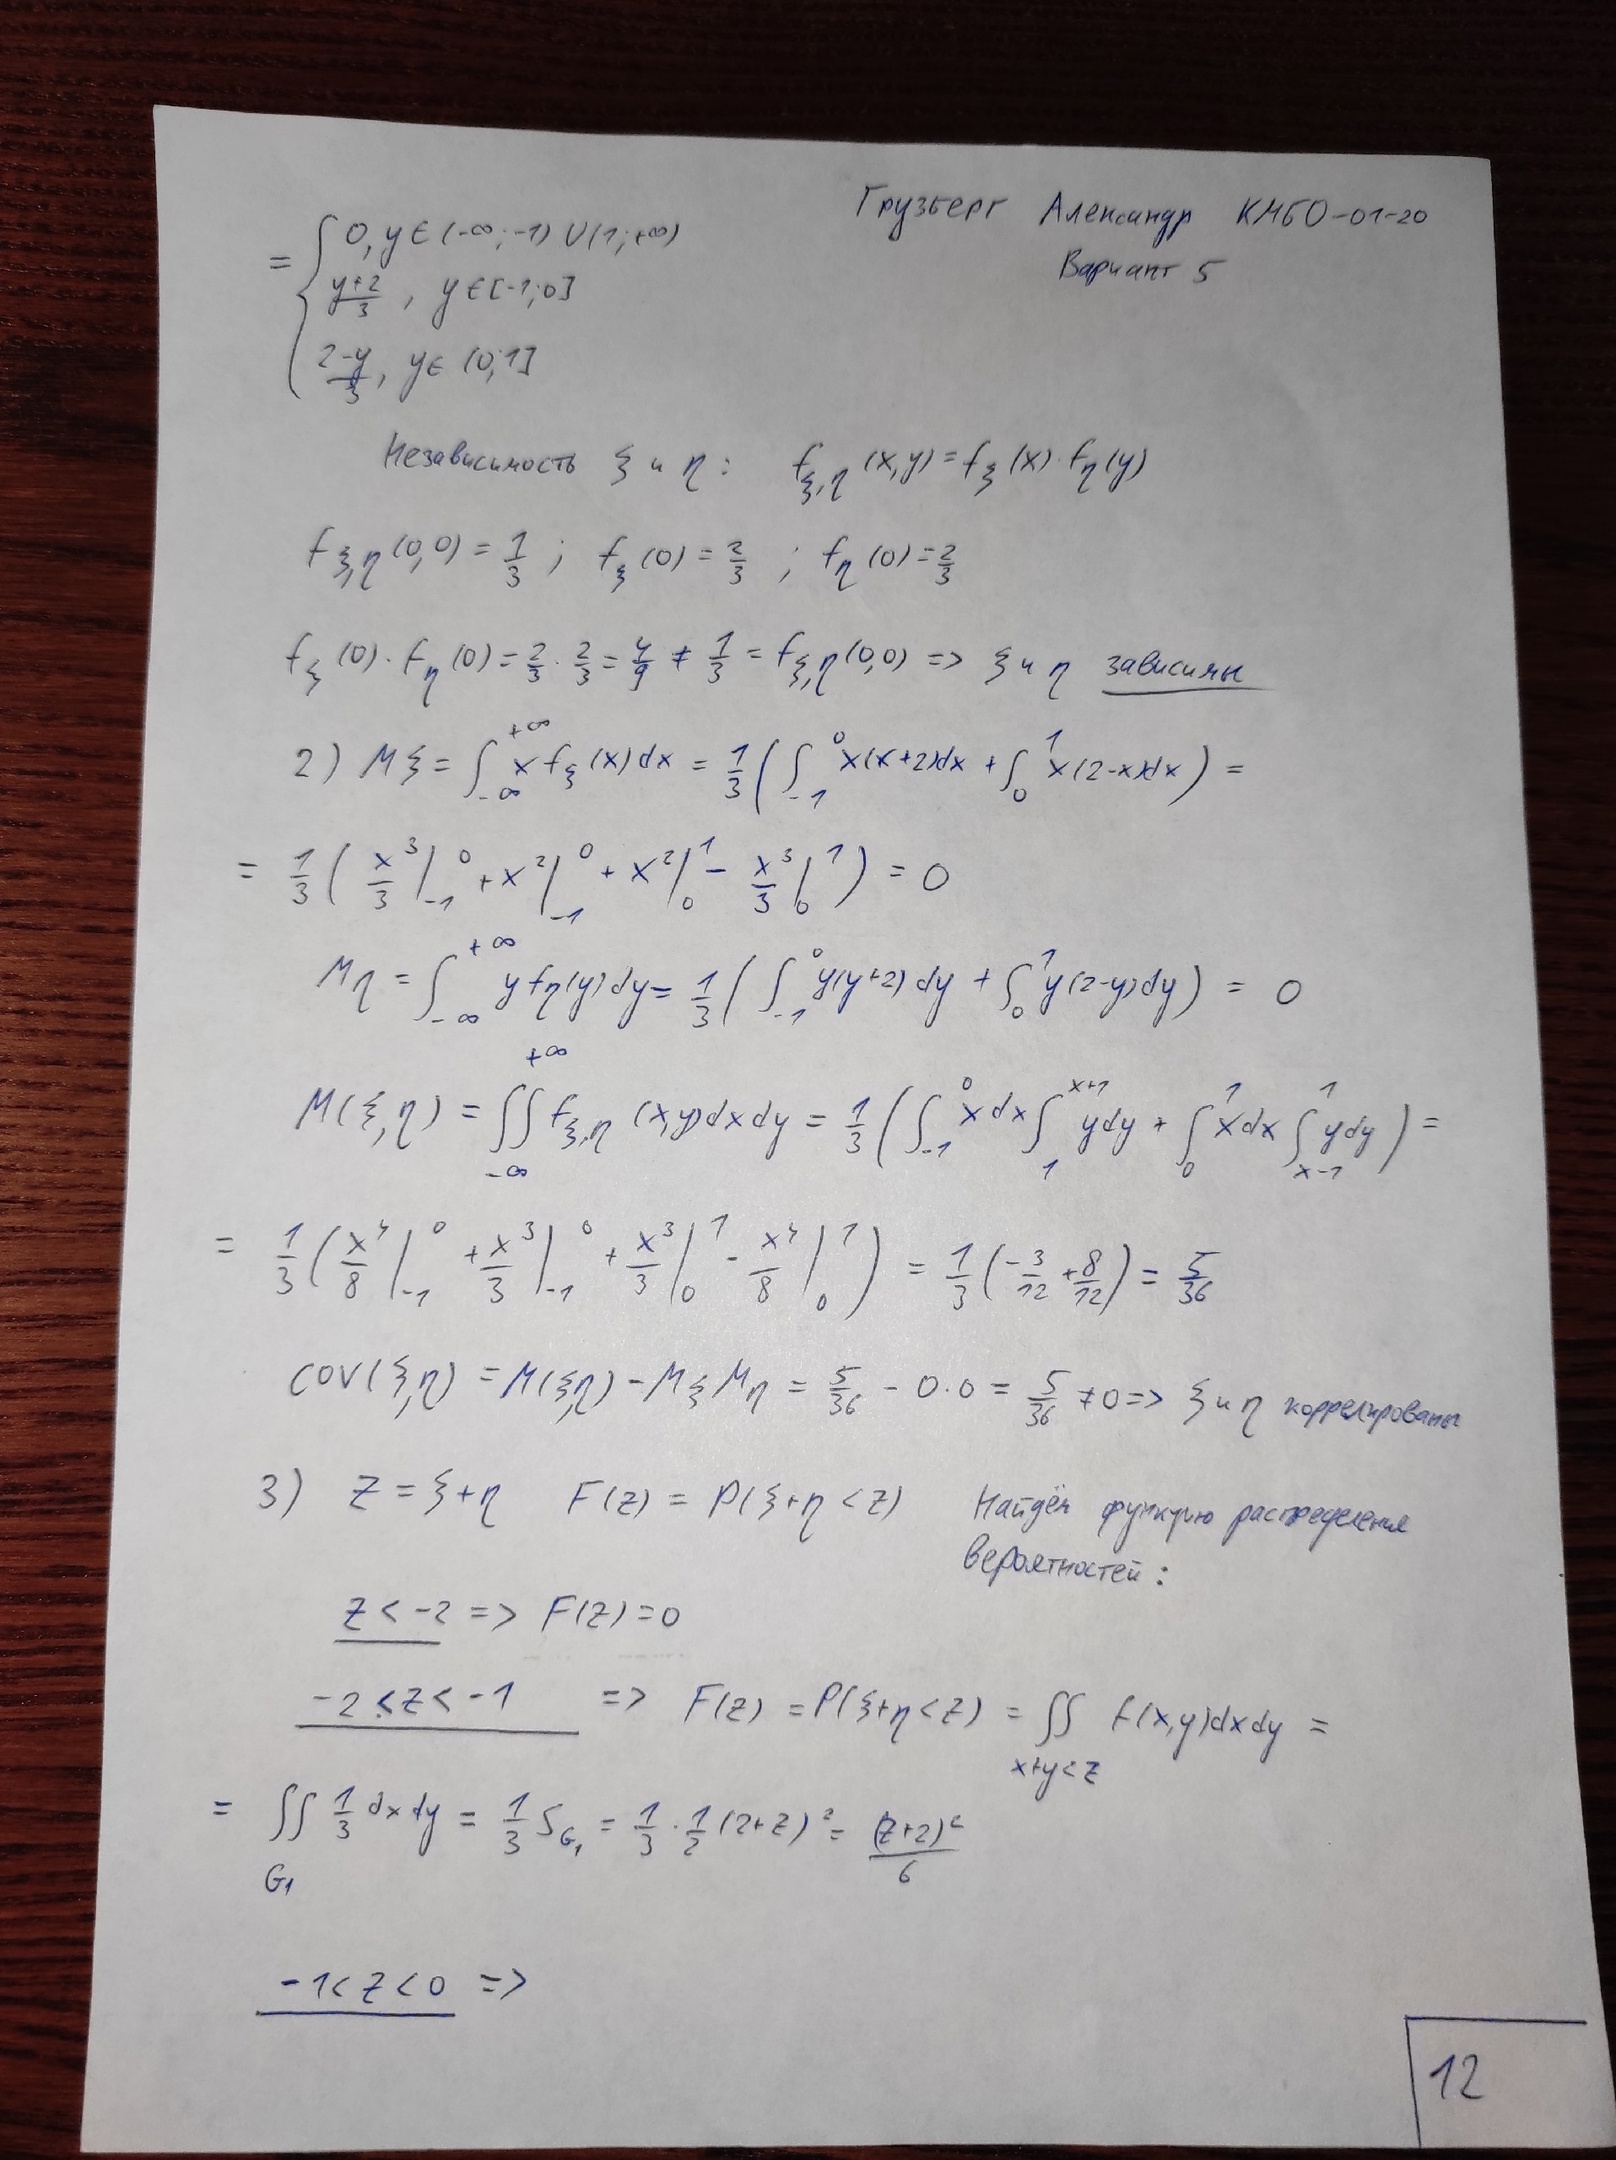 Грузберг Александр КМБО-01-20
Вариант 5
= { 0, y ∈ (-∞; -1) ∪ (1; +∞)
y+2/3 , y ∈ [-1; 0]
2-y/3 , y ∈ (0; 1]
Независимость ξ и η: f_ξ,η (x,y) = f_ξ (x) · f_η (y)
f_ξ,η (0,0) = 1/3 ; f_ξ (0) = 2/3 ; f_η (0) = 2/3
f_ξ (0) · f_η (0) = 2/3 · 2/3 = 4/9 ≠ 1/3 = f_ξ,η (0,0) => ξ и η зависимы
2) Mξ = ∫_{-∞}^{+∞} x f_ξ (x) dx = 1/3 ( ∫_{-1}^{0} x(x+2)dx + ∫_{0}^{1} x(2-x)dx ) =
= 1/3 ( x^3/3 |_{-1}^{0} + x^2 |_{-1}^{0} + x^2 |_{0}^{1} - x^3/3 |_{0}^{1} ) = 0
Mη = ∫_{-∞}^{+∞} y f_η (y) dy = 1/3 ( ∫_{-1}^{0} y(y+2) dy + ∫_{0}^{1} y(2-y) dy ) = 0
M(ξ,η) = ∬_{-∞}^{+∞} f_ξ,η (x,y) dx dy = 1/3 ( ∫_{-1}^{0} x dx ∫_{1}^{x+1} y dy + ∫_{0}^{1} x dx ∫_{x-1}^{1} y dy ) =
= 1/3 ( x^4/8 |_{-1}^{0} + x^3/3 |_{-1}^{0} + x^3/3 |_{0}^{1} - x^4/8 |_{0}^{1} ) = 1/3 ( -3/12 + 8/12 ) = 5/36
cov(ξ,η) = M(ξ,η) - Mξ Mη = 5/36 - 0·0 = 5/36 ≠ 0 => ξ и η коррелированы
3) Z = ξ+η F(z) = P(ξ+η < z) Найдём функцию распределения
вероятностей:
z < -2 => F(z) = 0
-2 < z < -1 => F(z) = P(ξ+η < z) = ∬_{x+y<z} f(x,y) dx dy =
= ∬_{G1} 1/3 dx dy = 1/3 S_{G1} = 1/3 · 1/2 (2+z)^2 = (z+2)^2/6
-1 < z < 0 =>
12